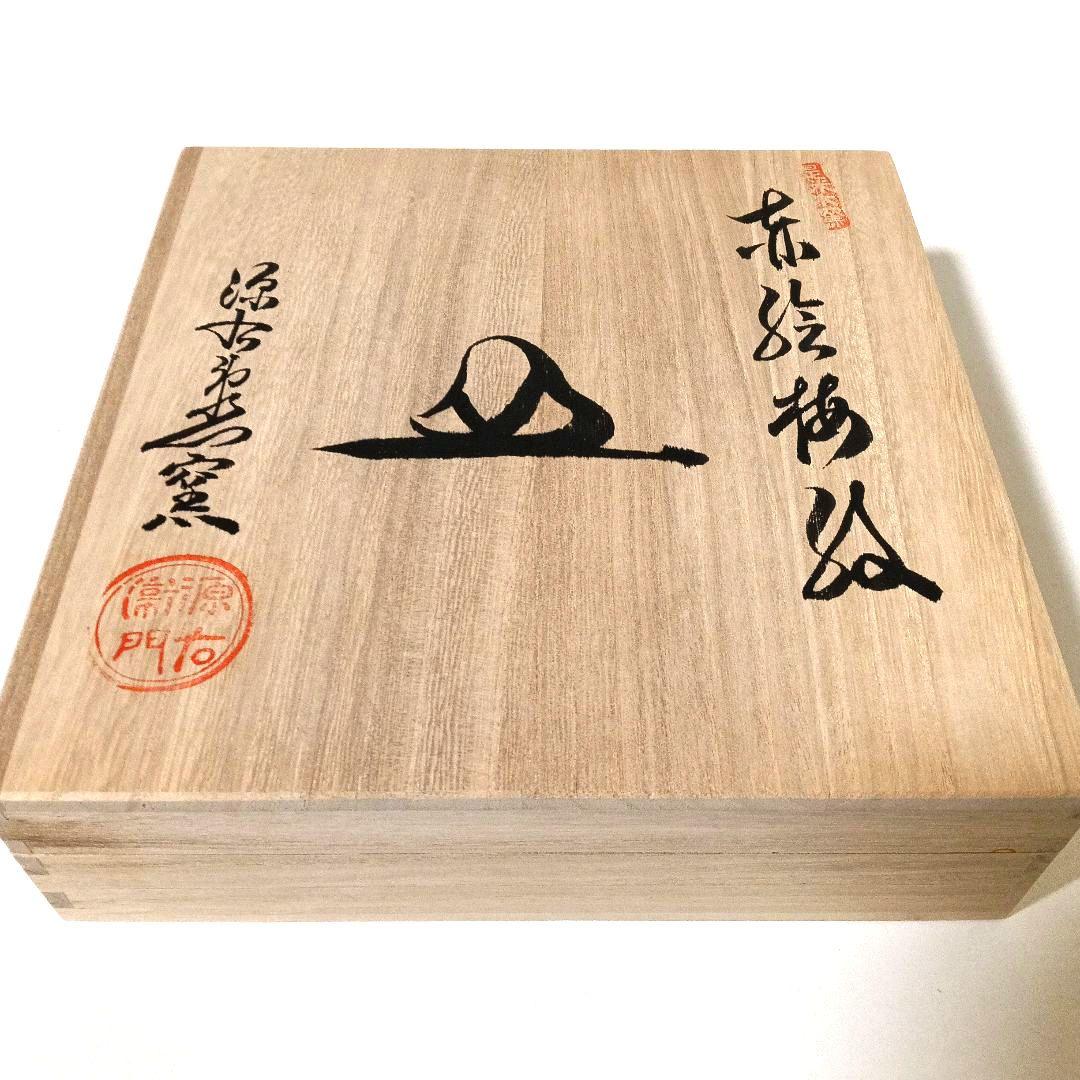 赤絵梅紋
皿
源右衛門窯
源右
衛門